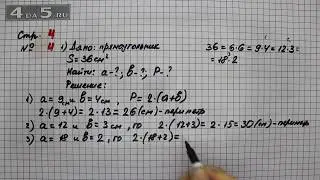 4DA5.RU
Стр. 4
№ 4 1) Дано: прямоугольник
S = 36 см²
Найти: a-?; b-?; P-?
Решение:
36 = 6·6 = 9·4 = 12·3 =
= 18·2
1) a = 9 см и b = 4 см, P = 2·(a+b)
2·(9+4) = 2·13 = 26 (см) - периметр
2) a = 12 и b = 3 см, то 2·(12+3) = 2·15 = 30 (см) - периметр
3) a = 18 и b = 2, то 2·(18+2) =